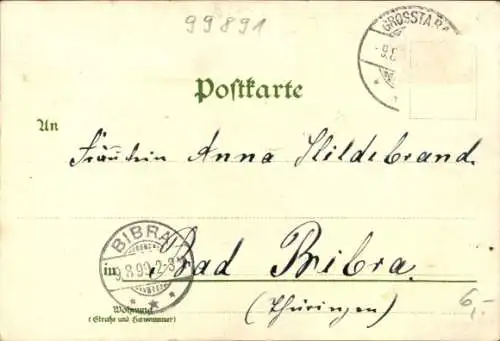 99891
GROSSTABA
9.8
Postkarte
An
Fräulein Anna Hildebrand.
BIBRA
9.8.99.2-3
in Bad Bibra.
(Thüringen)
6,-
Wohnung
(Straße und Hausnummer)